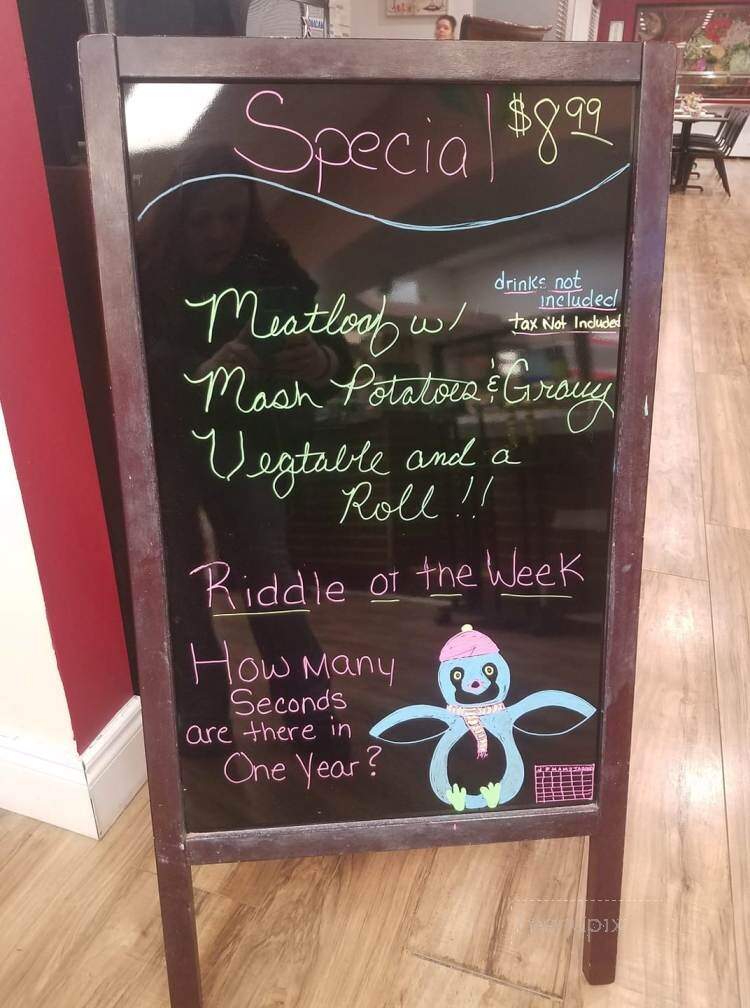 Special $8.99
drinks not
included
Tax Not Included
Meatloaf w/
Mash Potatoes & Gravy
Vegtable and a
Roll !!
Riddle of the Week
How Many
Seconds
are there in
One Year?